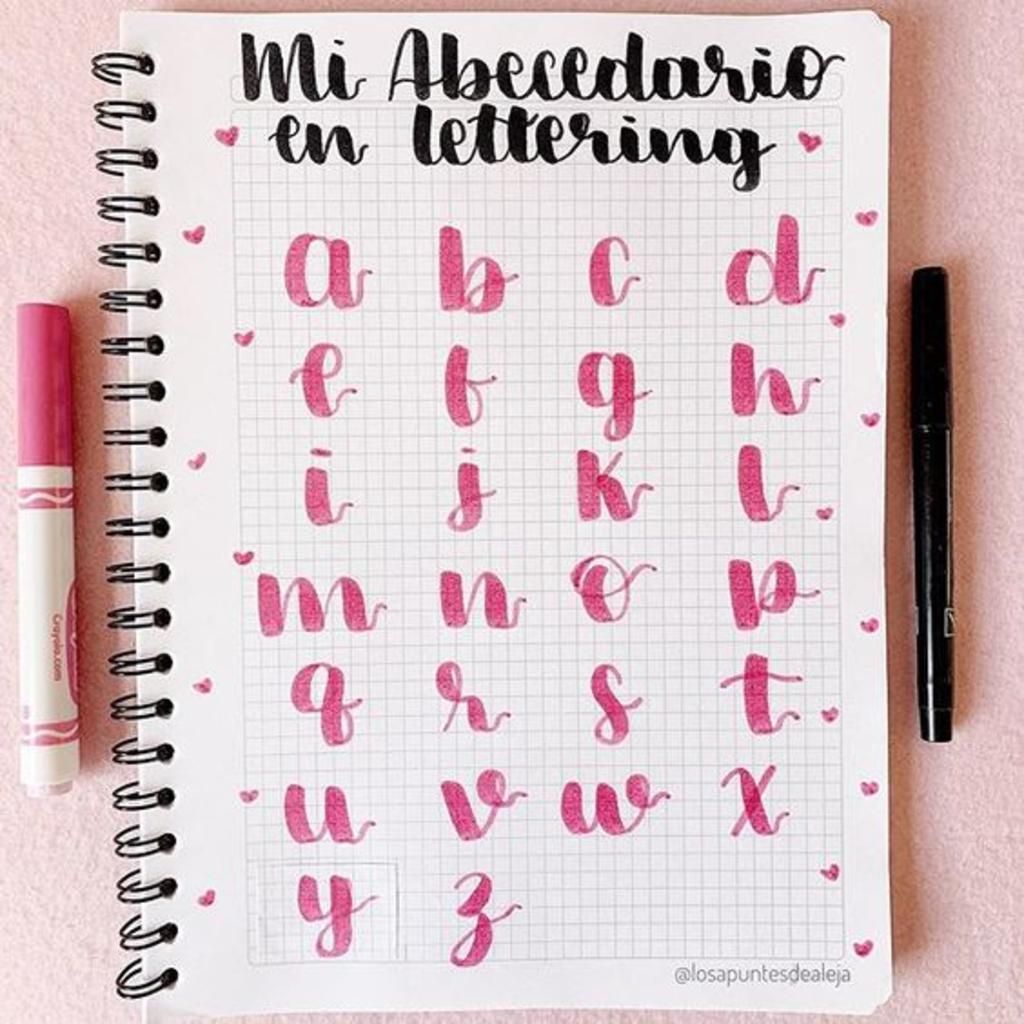 Mi Abecedario
en lettering
a b c d
e f g h
i j k l
m n o p
q r s t
u v w x
y z
@losapuntesdealeja
Crayola.com